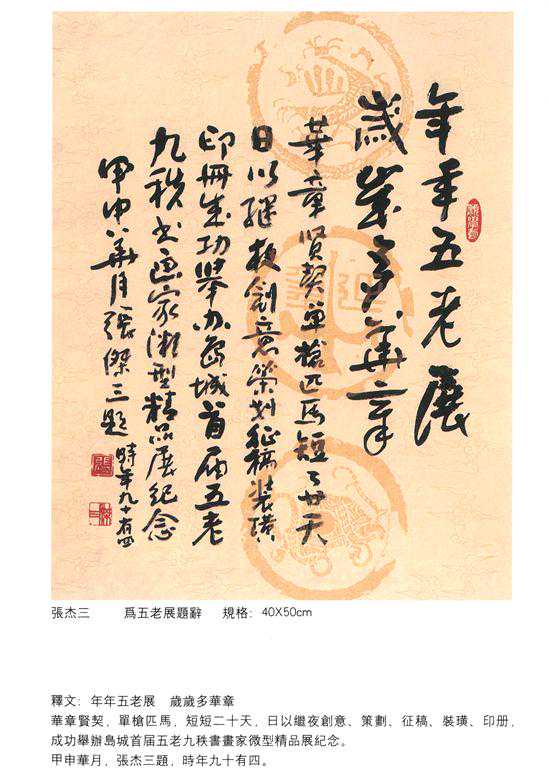 年年五老展
歲歲多華章
華章賢契單槍匹馬短短廿天
日以继夜創意策划征稿装璜
印冊成功舉办島城首届五老
九秩书画家微型精品展纪念
甲申華月張傑三题
時年九十有四
張杰三 爲五老展題辭 規格：40X50cm
釋文：年年五老展 歲歲多華章
華章賢契，單槍匹馬，短短二十天，日以繼夜創意、策劃、征稿、裝璜、印册，
成功舉辦島城首届五老九秩書畫家微型精品展紀念。
甲申華月，張杰三題，時年九十有四。